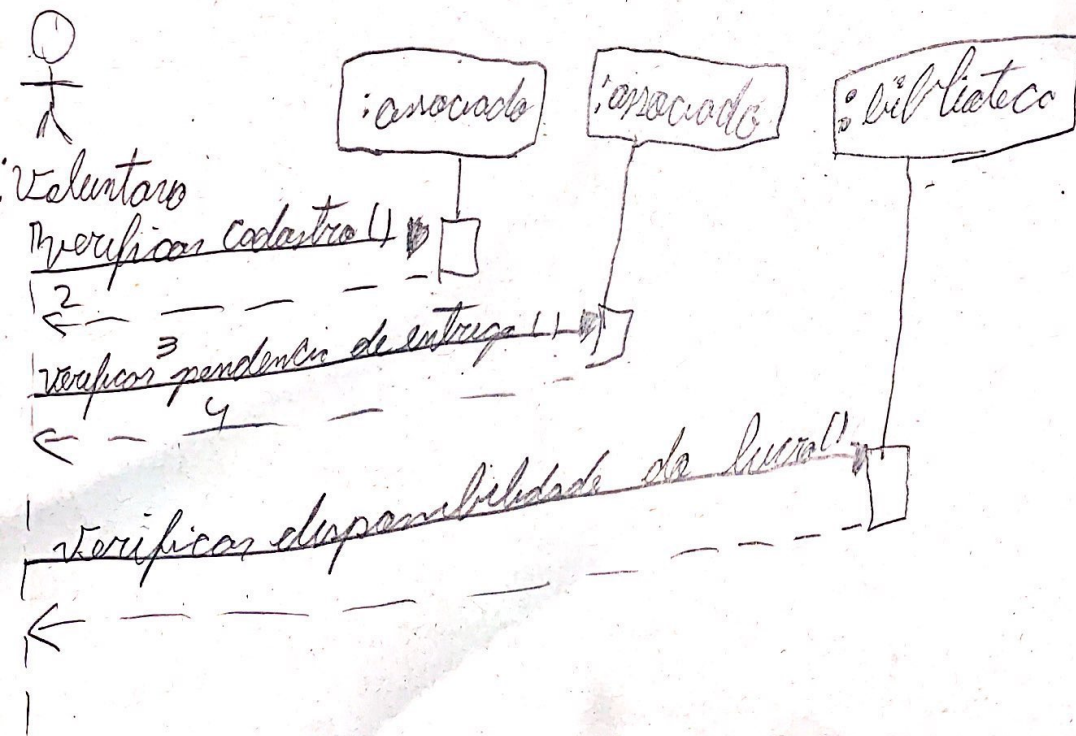 :associado
:associado
:biblioteca
:Voluntaro
1 verificar cadastro()
2
3
verificar pendencia de entrega()
4
verificar disponibilidade do livro()